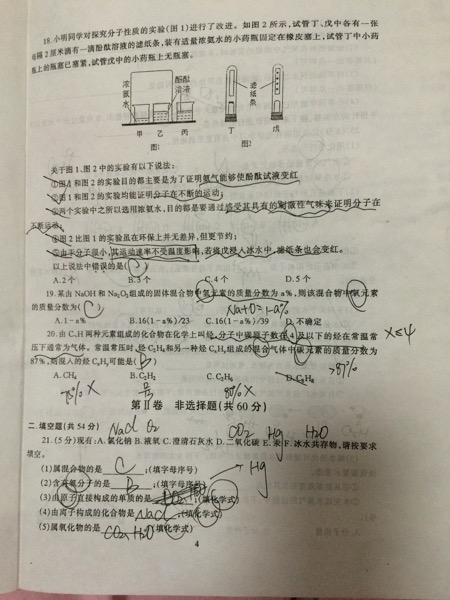 18.小明同学对探究分子性质的实验(图1)进行了改进。如图2所示,试管丁、戊中各有一张
每隔2厘米滴有一滴酚酞溶液的滤纸条,装有适量浓氨水的小药瓶固定在橡皮塞上,试管丁中小药
瓶上的瓶塞已塞紧,试管戊中的小药瓶上无瓶塞。
浓氨水
酚酞溶液
滤纸条
甲 乙 丙
丁 戊
图1
图2
关于图1、图2中的实验有以下说法:
①图1和图2的实验目的都主要是为了证明氨气能够使酚酞试液变红
②图1和图2的实验均能证明分子在不断的运动;
③两个实验中之所以选用浓氨水,目的都是要通过感受其具有的刺激性气味来证明分子在
不断运动;
④图2比图1的实验虽在环保上并无差异,但更节约;
⑤由于分子很小,其运动速率不受温度影响,若将戊浸入冰水中,滤纸条也会变红。
以上说法中错误的是( )
A.2个 B.3个 C.4个 D.5个
19.某由NaOH和Na₂O₂组成的固体混合物中氢元素的质量分数为a%,则该混合物中氧元素
的质量分数为( C )
Na+O=1-a%
A.1-a% B.16(1-a%)/23 C.16(1-a%)/39 D.不确定
20.由C、H两种元素组成的化合物在化学上叫烃,分子中碳原子数在4及以下的烃在常温常
x≤4
压下通常为气体。常温常压时,烃C₂H₄和另一种烃CₓHᵧ组成的混合气体中碳元素的质量分数为
87%,则混入的烃CₓHᵧ可能是( B )
>87%
A.CH₄ B.C₂H₂ C.C₂H₆ D.C₈H₈
75% X
80% X
第Ⅱ卷 非选择题(共60分)
二.填空题(共54分)
NaCl O₂ CO₂ Hg H₂O
21.(5分)现有:A.氯化钠 B.液氧 C.澄清石灰水 D.二氧化碳 E.汞 F.冰水共存物,请按要求
填空。
(1)属混合物的是 C ;(填字母序号)
(2)含有氧分子的是 B ;(填字母序号)
(3)由原子直接构成的单质的是 ;(填化学式)
Hg
(4)由离子构成的化合物是 NaCl ;(填化学式)
(5)属氧化物的是 CO₂、H₂O (填化学式)
4